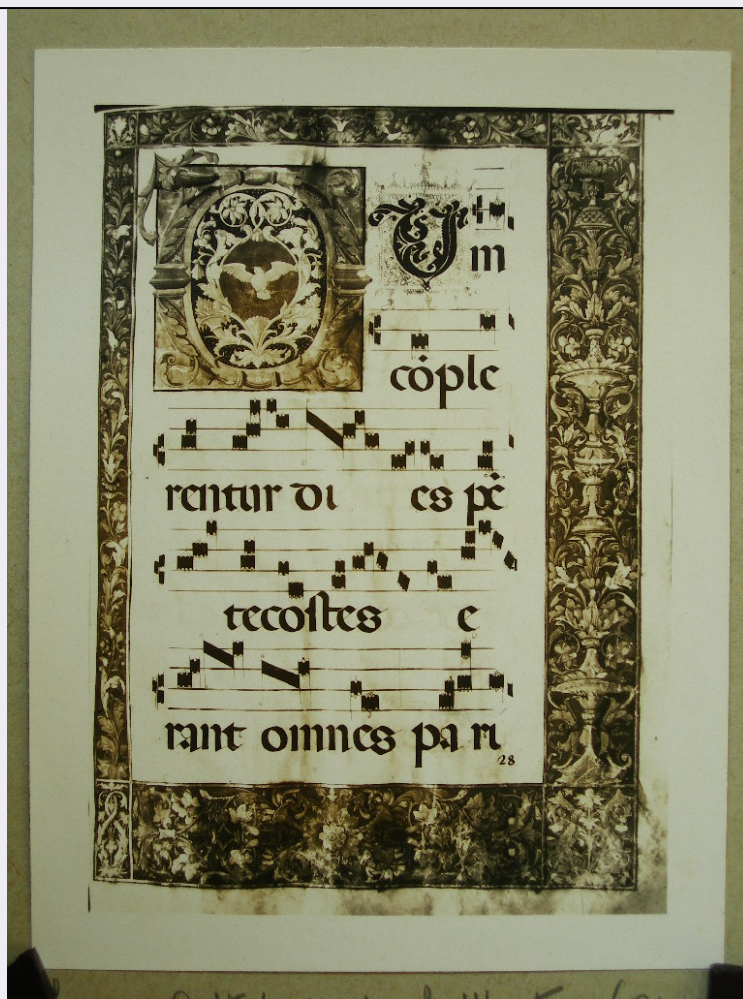 DUm
cōple
rentur di es pē
tecostes e
rant omnes pa ri
28